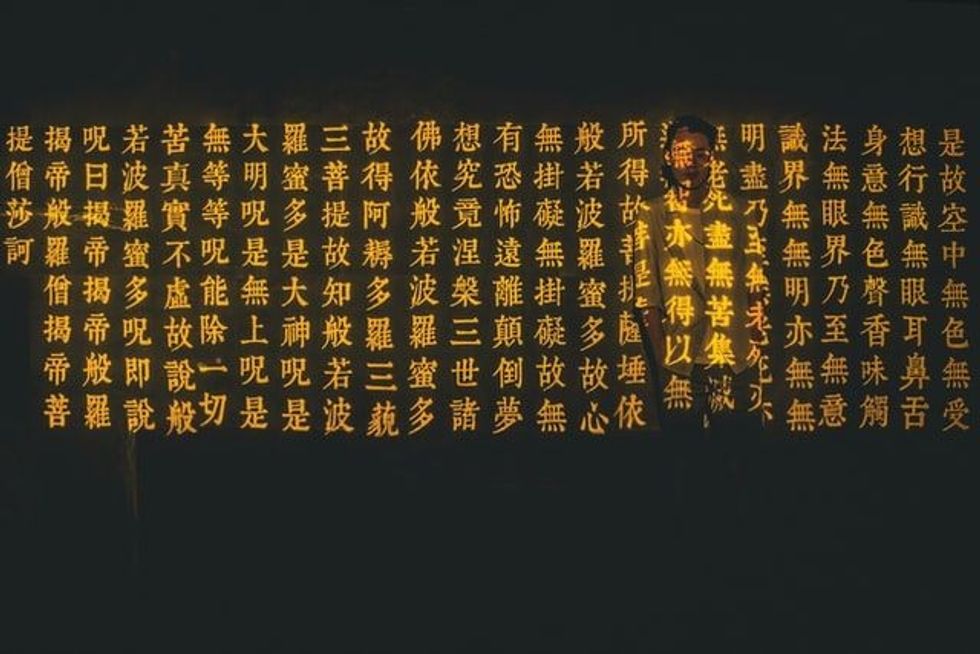 是故空中無色無受
想行識無眼耳鼻舌
身意無色聲香味觸
法無眼界乃至無意
識界無無明亦無無
明盡乃至無老死亦
無老死盡無苦集滅
亦無得以無
所得故菩提薩埵依
般若波羅蜜多故心
無掛礙無掛礙故無
有恐怖遠離顛倒夢
想究竟涅槃三世諸
佛依般若波羅蜜多
故得阿耨多羅三藐
三菩提故知般若波
羅蜜多是大神呪是
大明呪是無上呪是
無等等呪能除一切
苦真實不虛故說般
若波羅蜜多呪即說
呪曰揭帝揭帝般羅
揭帝般羅僧揭帝菩
提僧莎訶